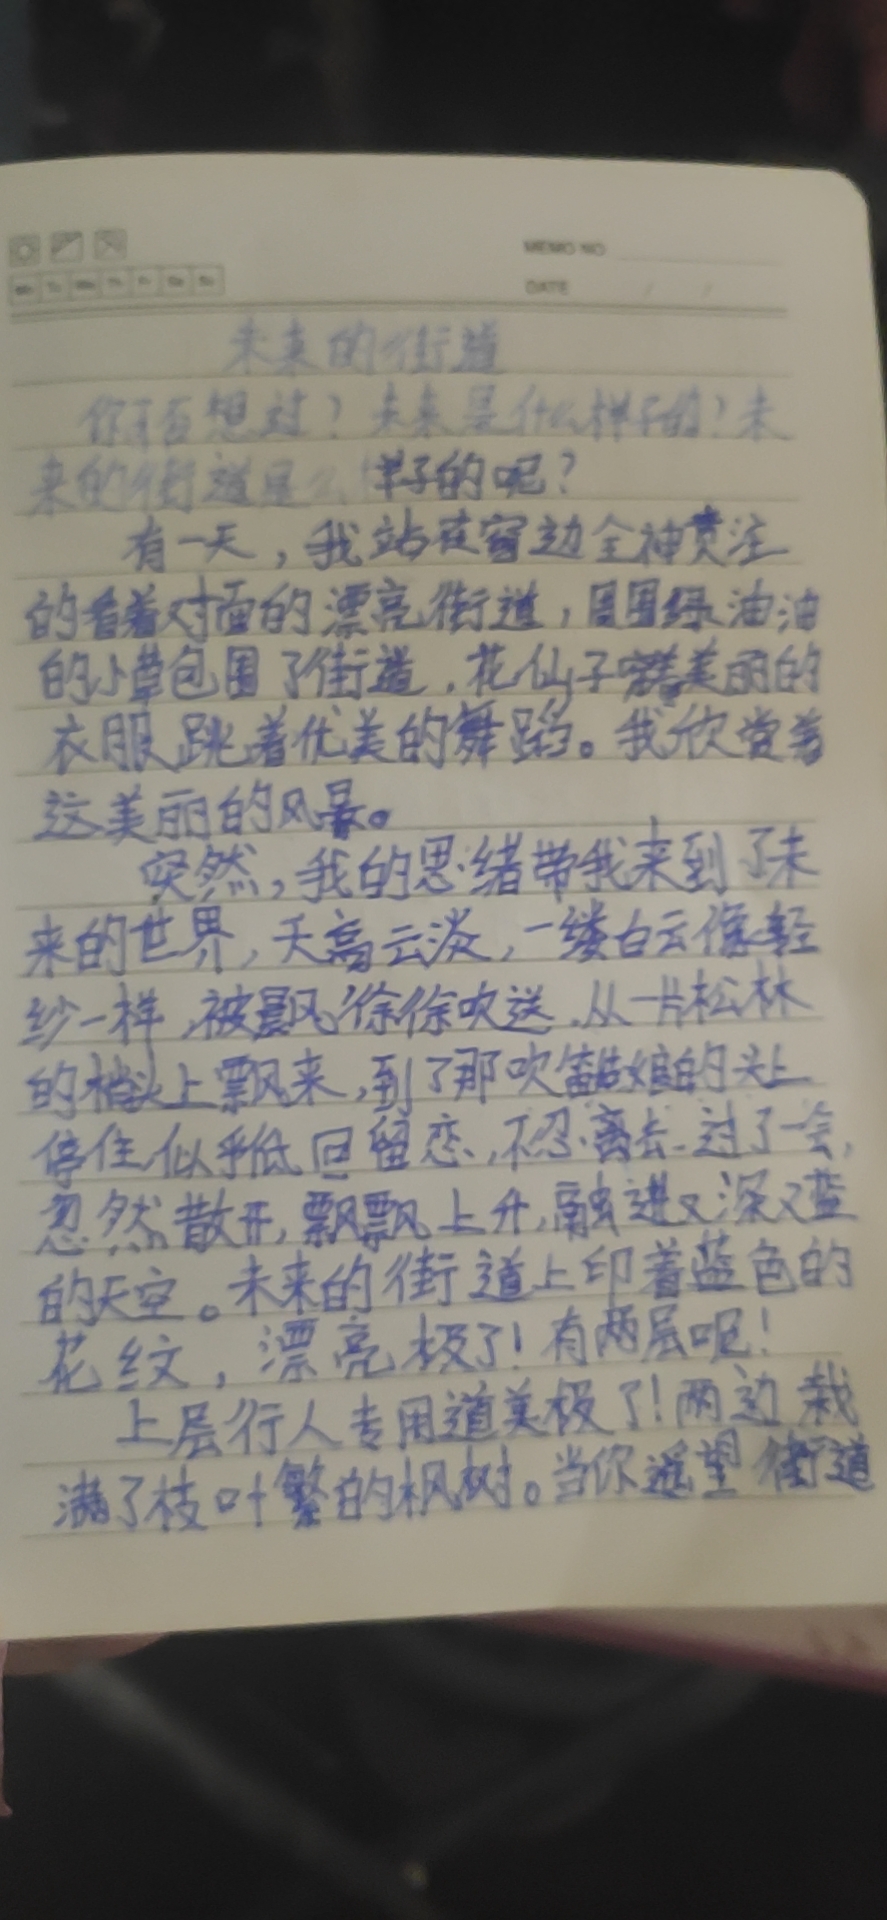 MEMO NO
DATE / /
未来的街道
你有否想过？未来是什么样子的？未
来的街道是么样子的呢？
有一天，我站在窗边全神贯注
的看着对面的漂亮街道，周围绿油油
的小草包围了街道，花仙子穿着美丽的
衣服跳着优美的舞蹈。我欣赏着
这美丽的风景。
突然，我的思绪带我来到了未
来的世界，天高云淡，一缕白云像轻
纱一样，被飘徐徐吹送，从一片松林
的梢头上飘来，到了那吹笛姑娘的头上
停住，似乎低回留恋，不忍离去，过了一会，
忽然散开，飘飘上升，融进又深又蓝
的天空。未来的街道上印着蓝色的
花纹，漂亮极了！有两层呢！
上层行人专用道美极了！两边栽
满了枝叶繁的枫树。当你遥望街道